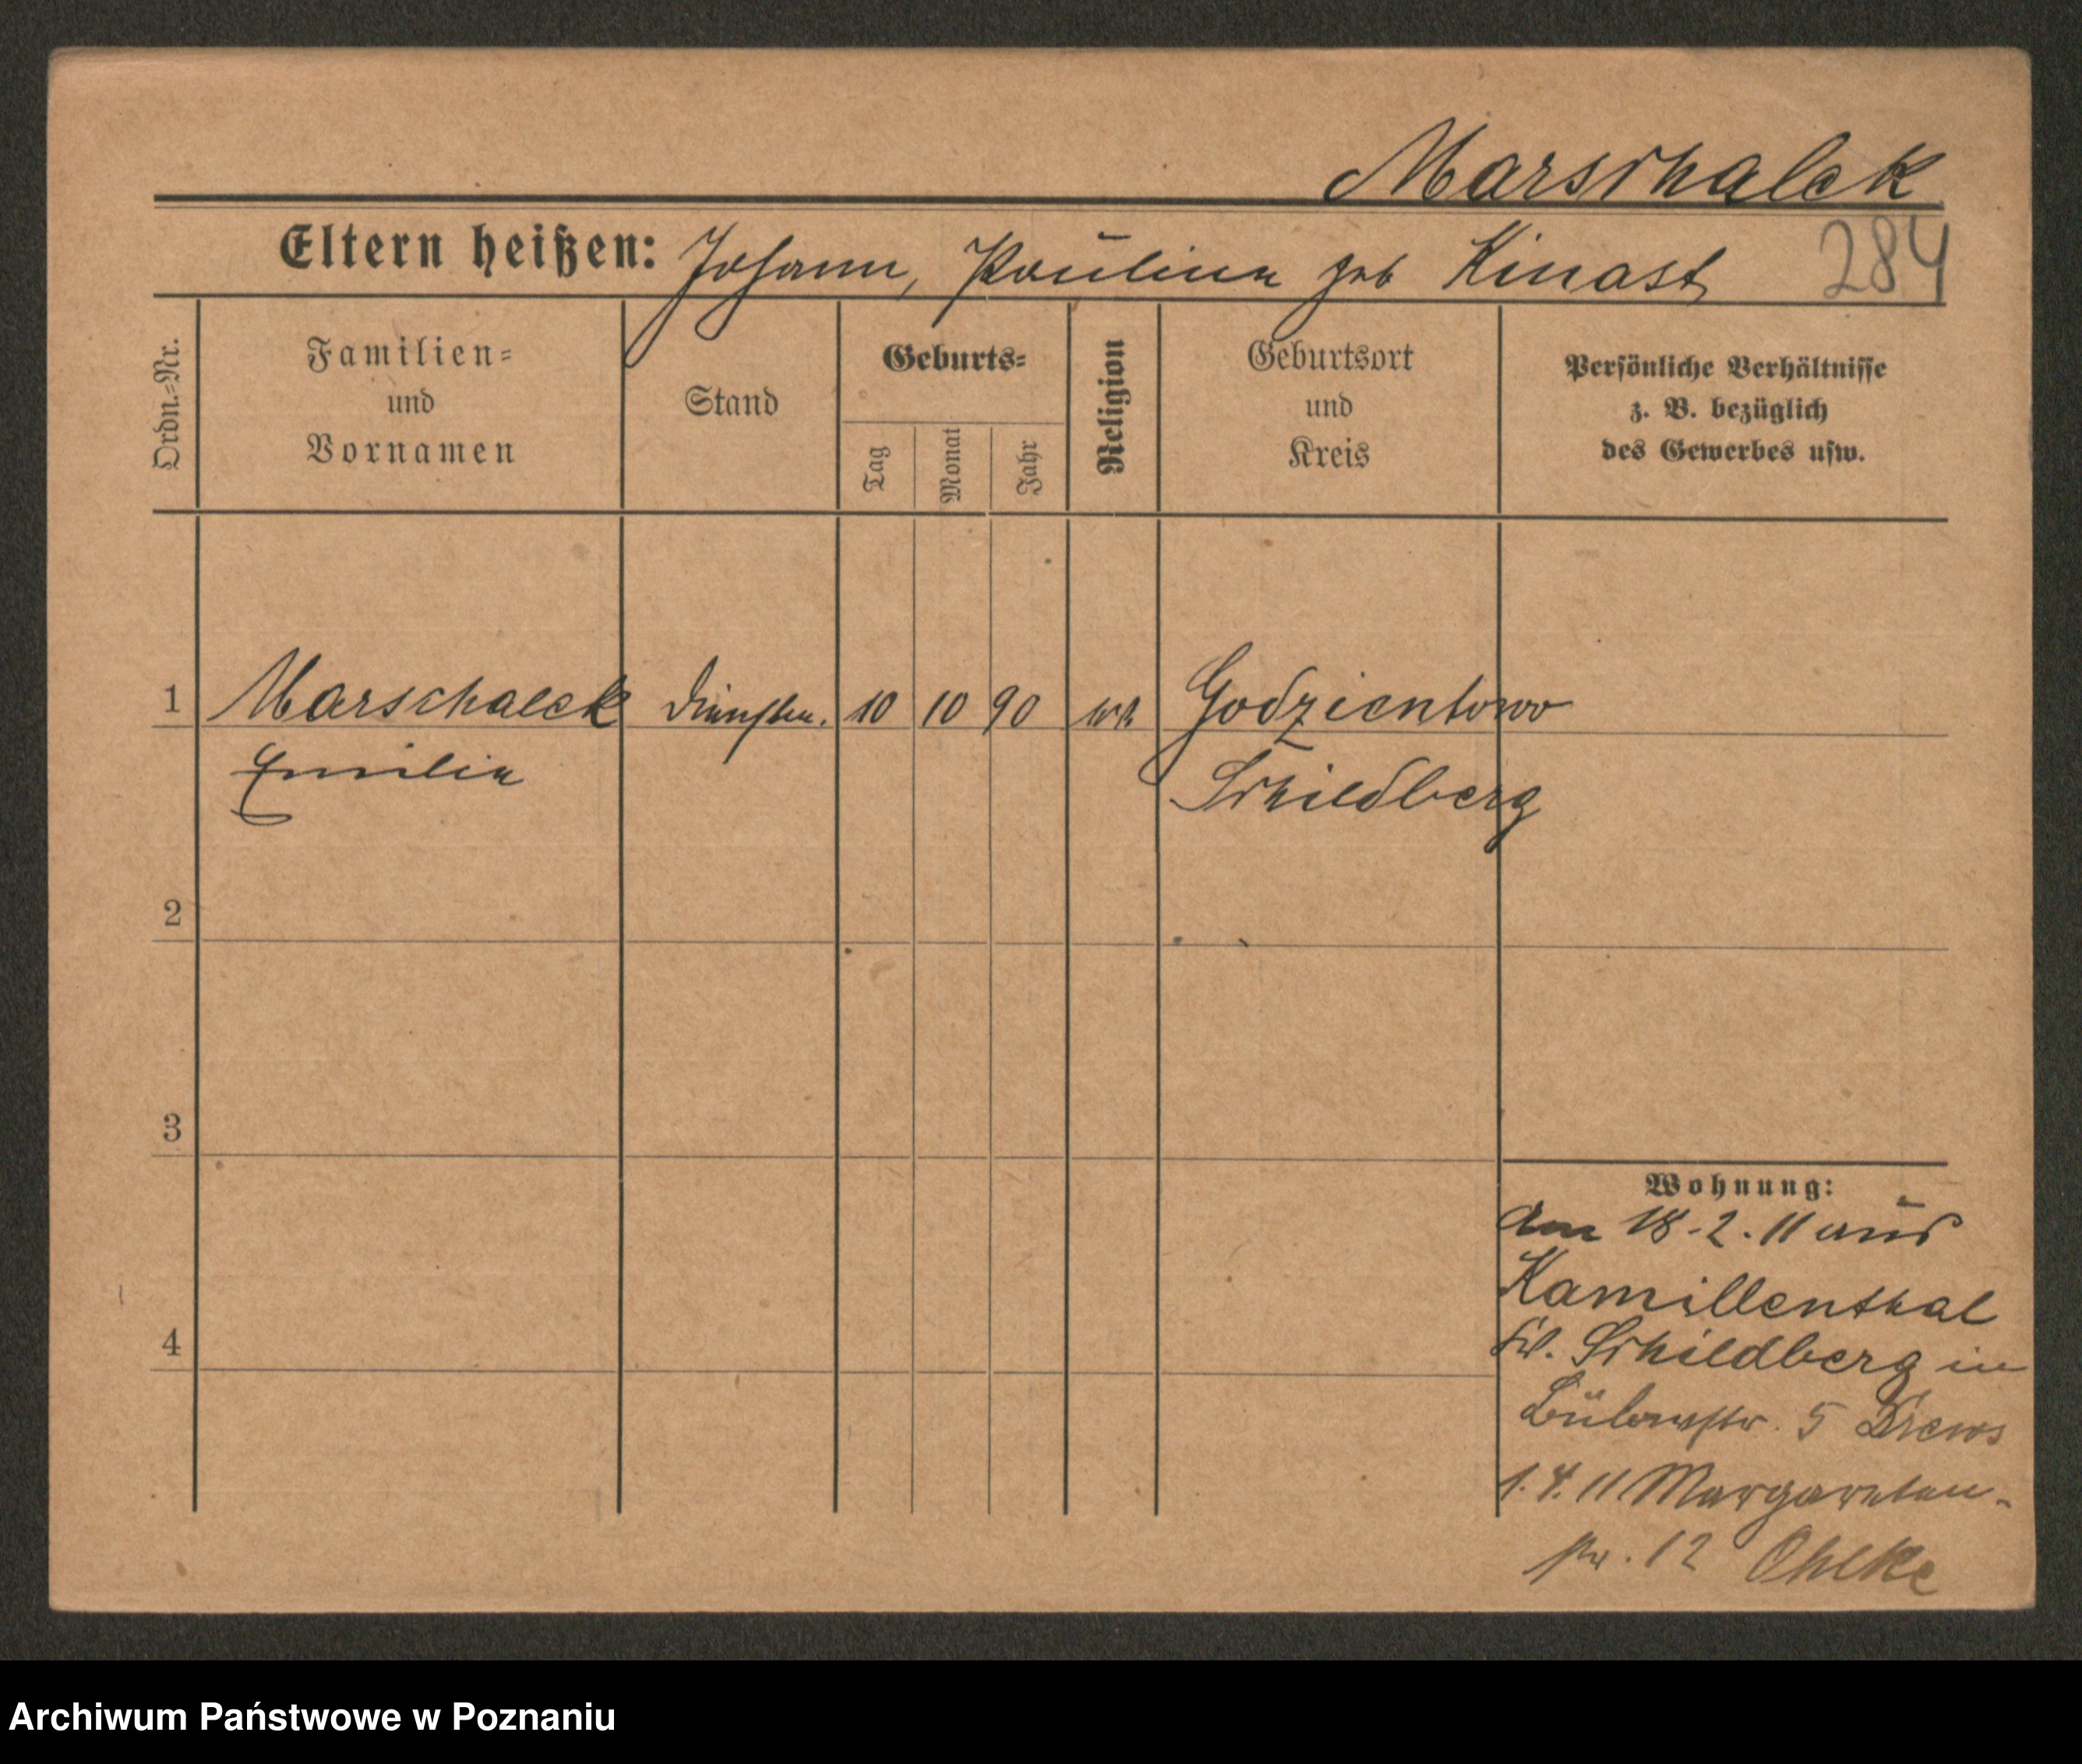 Marschalck
Eltern heißen: Johann, Pauline geb Kinast 284
Ordn.=Nr.
Familien=
und
Vornamen
Stand
Geburts=
Tag
Monat
Jahr
Religion
Geburtsort
und
Kreis
Persönliche Verhältnisse
z. B. bezüglich
des Gewerbes usw.
1 Marschalck 10 10 90 Godzientowo
Emilie Schildberg
2
3
4
Wohnung:
am 18-2.11 aus
Kamillenthal
Schildberg in
Bülowstr. 5 Drews
1.4.11 Margareten-
str. 12 Ohlke
Archiwum Państwowe w Poznaniu